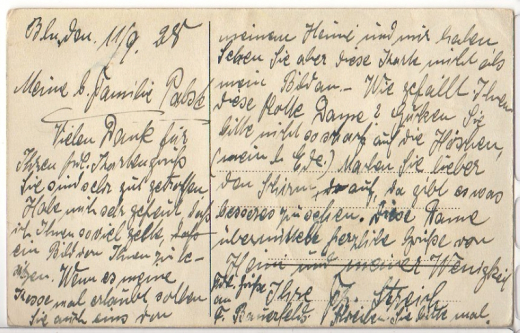 Bln, den. 11/9. 28
Meine l. Familie Pabst
Vielen Dank für
Ihren frdl. Kartengruß
Sie sind sehr gut getroffen
Habe mich sehr gefreut, daß
ich Ihnen so viel gelte, daß
ein Bild von Ihnen zu be-
sitzen. Wenn es meine
Kasse mal erlaubt sollen
Sie auch eins von
meinem Heim und mir haben
Sehen Sie aber diese Karte nicht als
mein Bild an. – Wie gefällt Ihnen
diese Dame? Gucken Sie
bitte nicht so scharf auf die Höschen,
(mein l. Gde.) Warten Sie lieber
den Schirm auf, da gibt es was
besseres zu sehen. Diese Dame
übermittelt herzliche Grüße von
Heim und meiner Wenigkeit
Frdl. Grüße Ihre
an
F. Schreiben Sie bitte mal